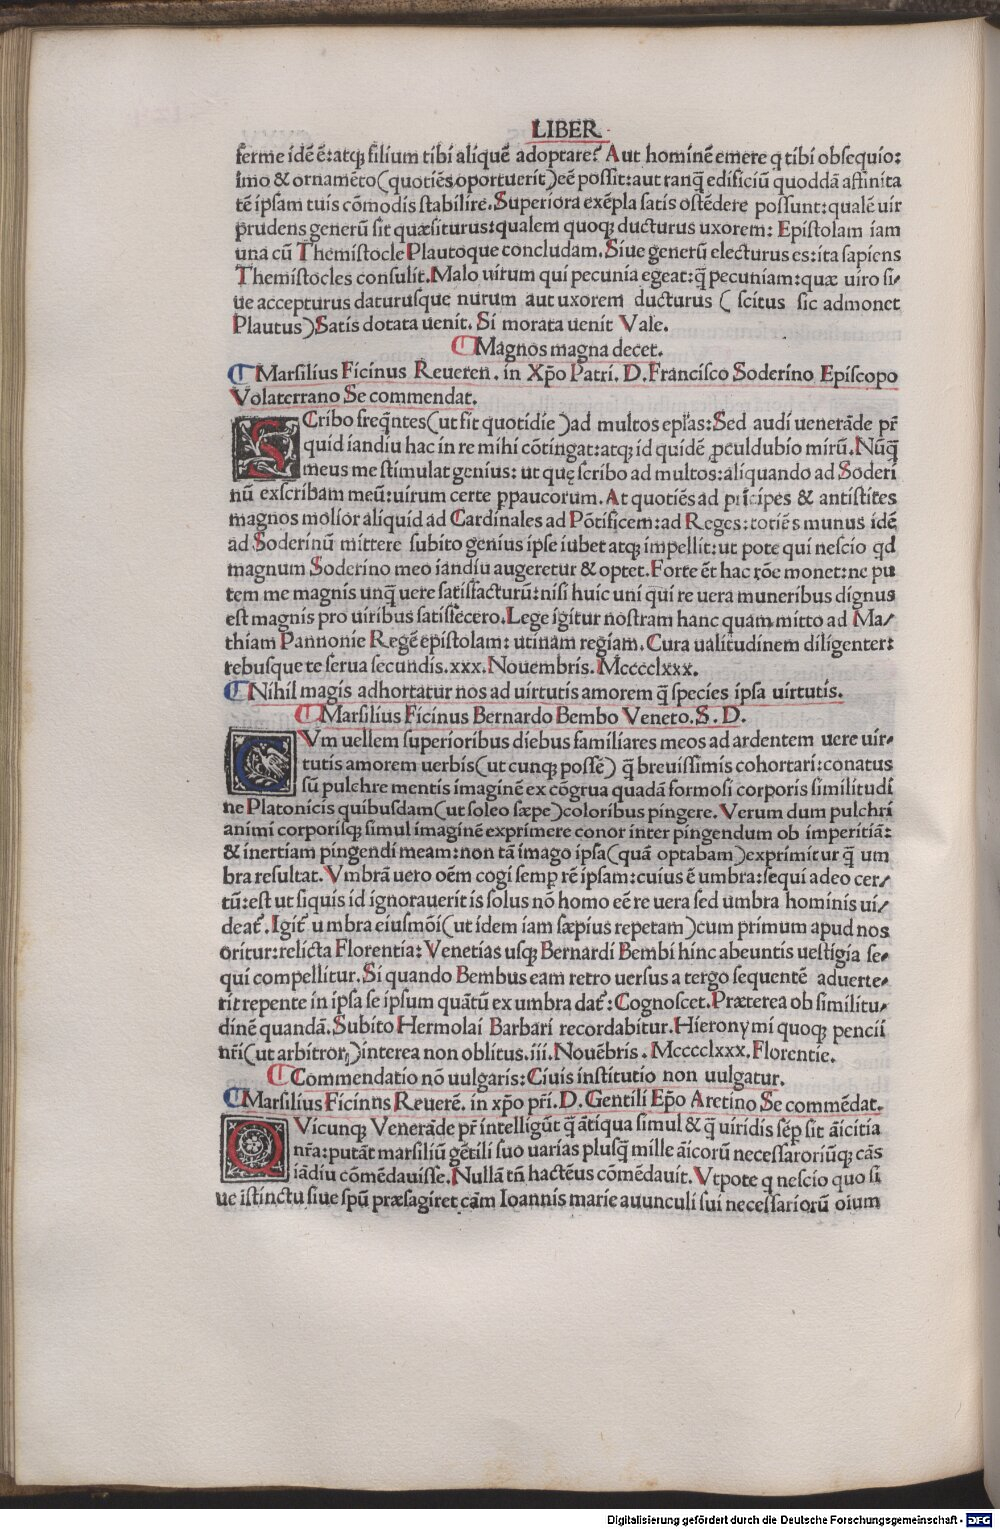 LIBER
ferme idē ē:atqꝫ filium tibi aliquē adoptare? Aut hominē emere q tibi obsequio:
imo & ornamēto(quotiēs oportuerit)eē possit:aut tanq̄ edificiū quoddā affinita
tē ipsam tuis cōmodis stabilire.Superiora exēpla satis ostēdere possunt:qualē uir
prudens generū sit quæsiturus:qualem quoqꝫ ducturus uxorem: Epistolam iam
una cū Themistocle Plautoque concludam.Siue generū electurus es:ita sapiens
Themistocles consulit.Malo uirum qui pecunia egeat:q̄ pecuniam:quæ uiro si/
ue accepturus daturusque nurum aut uxorem ducturus ( scitus sic admonet
Plautus)Satis dotata uenit. Si morata uenit Vale.
Magnos magna decet.
Marsilius Ficinus Reueren. in Xp̄o Patri. D. Francisco Soderino Episcopo
Volaterrano Se commendat.
SCribo freq̄ntes(ut fit quotidie)ad multos epl̄as:Sed audi uenerāde pr̄
quid iandiu hac in re mihi cōtingat:atqꝫ id quidē ꝓculdubio mirū.Nūq̄
meus me stimulat genius: ut quę scribo ad multos:aliquando ad Soderi
nū exscribam meū:uirum certe ꝑpaucorum.At quotiēs ad prīcipes & antistites
magnos molior aliquid ad Cardinales ad Pōtificem:ad Reges:totiēs munus idē
ad Soderinū mittere subito genius ipse iubet atqꝫ impellit:ut pote qui nescio qd
magnum Soderino meo iandiu augeretur & optet.Forte ēt hac rōe monet:ne pu
tem me magnis unq̄ uere satisfacturū:nisi huic uni qui re uera muneribus dignus
est magnis pro uiribus satisfecero.Lege igitur nostram hanc quam mitto ad Ma/
thiam Pannonie Regē epistolam: utinam regiam.Cura ualitudinem diligenter:
rebusque te serua secundis.xxx.Nouembris.Mcccclxxx.
Nihil magis adhortatur nos ad uirtutis amorem q̄ species ipsa uirtutis.
Marsilius Ficinus Bernardo Bembo Veneto.S.D.
CVm uellem superioribus diebus familiares meos ad ardentem uere uir/
tutis amorem uerbis(ut cunqꝫ possē) q̄ breuissimis cohortari:conatus
sū pulchre mentis imaginē ex cōgrua quadā formosi corporis similitudi
ne Platonicis quibusdam(ut soleo sæpe)coloribus pingere.Verum dum pulchri
animi corporisqꝫ simul imaginē exprimere conor inter pingendum ob imperitiā:
& inertiam pingendi meam:non tā imago ipsa(quā optabam)exprimitur q̄ um
bra resultat.Vmbrā uero oēm cogi semꝑ rē ipsam:cuius ē umbra:sequi adeo cer/
tū:est ut siquis id ignorauerit is solus nō homo eē re uera sed umbra hominis ui/
deat̄.Igit̄ umbra eiusmōi(ut idem iam sæpius repetam)cum primum apud nos
oritur:relicta Florentia: Venetias usqꝫ Bernardi Bembi hinc abeuntis uestigia se/
qui compellitur.Si quando Bembus eam retro uersus a tergo sequentē aduerte/
rit repente in ipsa se ipsum quātū ex umbra dat̄:Cognoscet.Præterea ob similitu/
dinē quandā.Subito Hermolai Barbari recordabitur.Hieronymi quoqꝫ pencii
nr̄i(ut arbitror)interea non oblitus.iii.Nouēbris.Mcccclxxx.Florentie.
Commendatio nō uulgaris:Ciuis institutio non uulgatur.
Marsilius Ficinns Reuerē. in xp̄o pr̄i.D.Gentili Ep̄o Aretino Se commēdat.
QVicunqꝫ Venerāde pr̄ intelligūt q̄ ātiqua simul & q̄ uiridis sēp sit āicitia
nr̄a:putāt marsiliū gētili suo uarias plusq̄ mille āicorū necessarioriūqꝫ cās
iādiu cōmēdauisse.Nullā tn̄ hactēus cōmēdauit.Vtpote q nescio quo si
ue īstinctu siue spū præsagiret cām Ioannis marie auunculi sui necessariorū oium
Digitalisierung gefördert durch die Deutsche Forschungsgemeinschaft - DFG